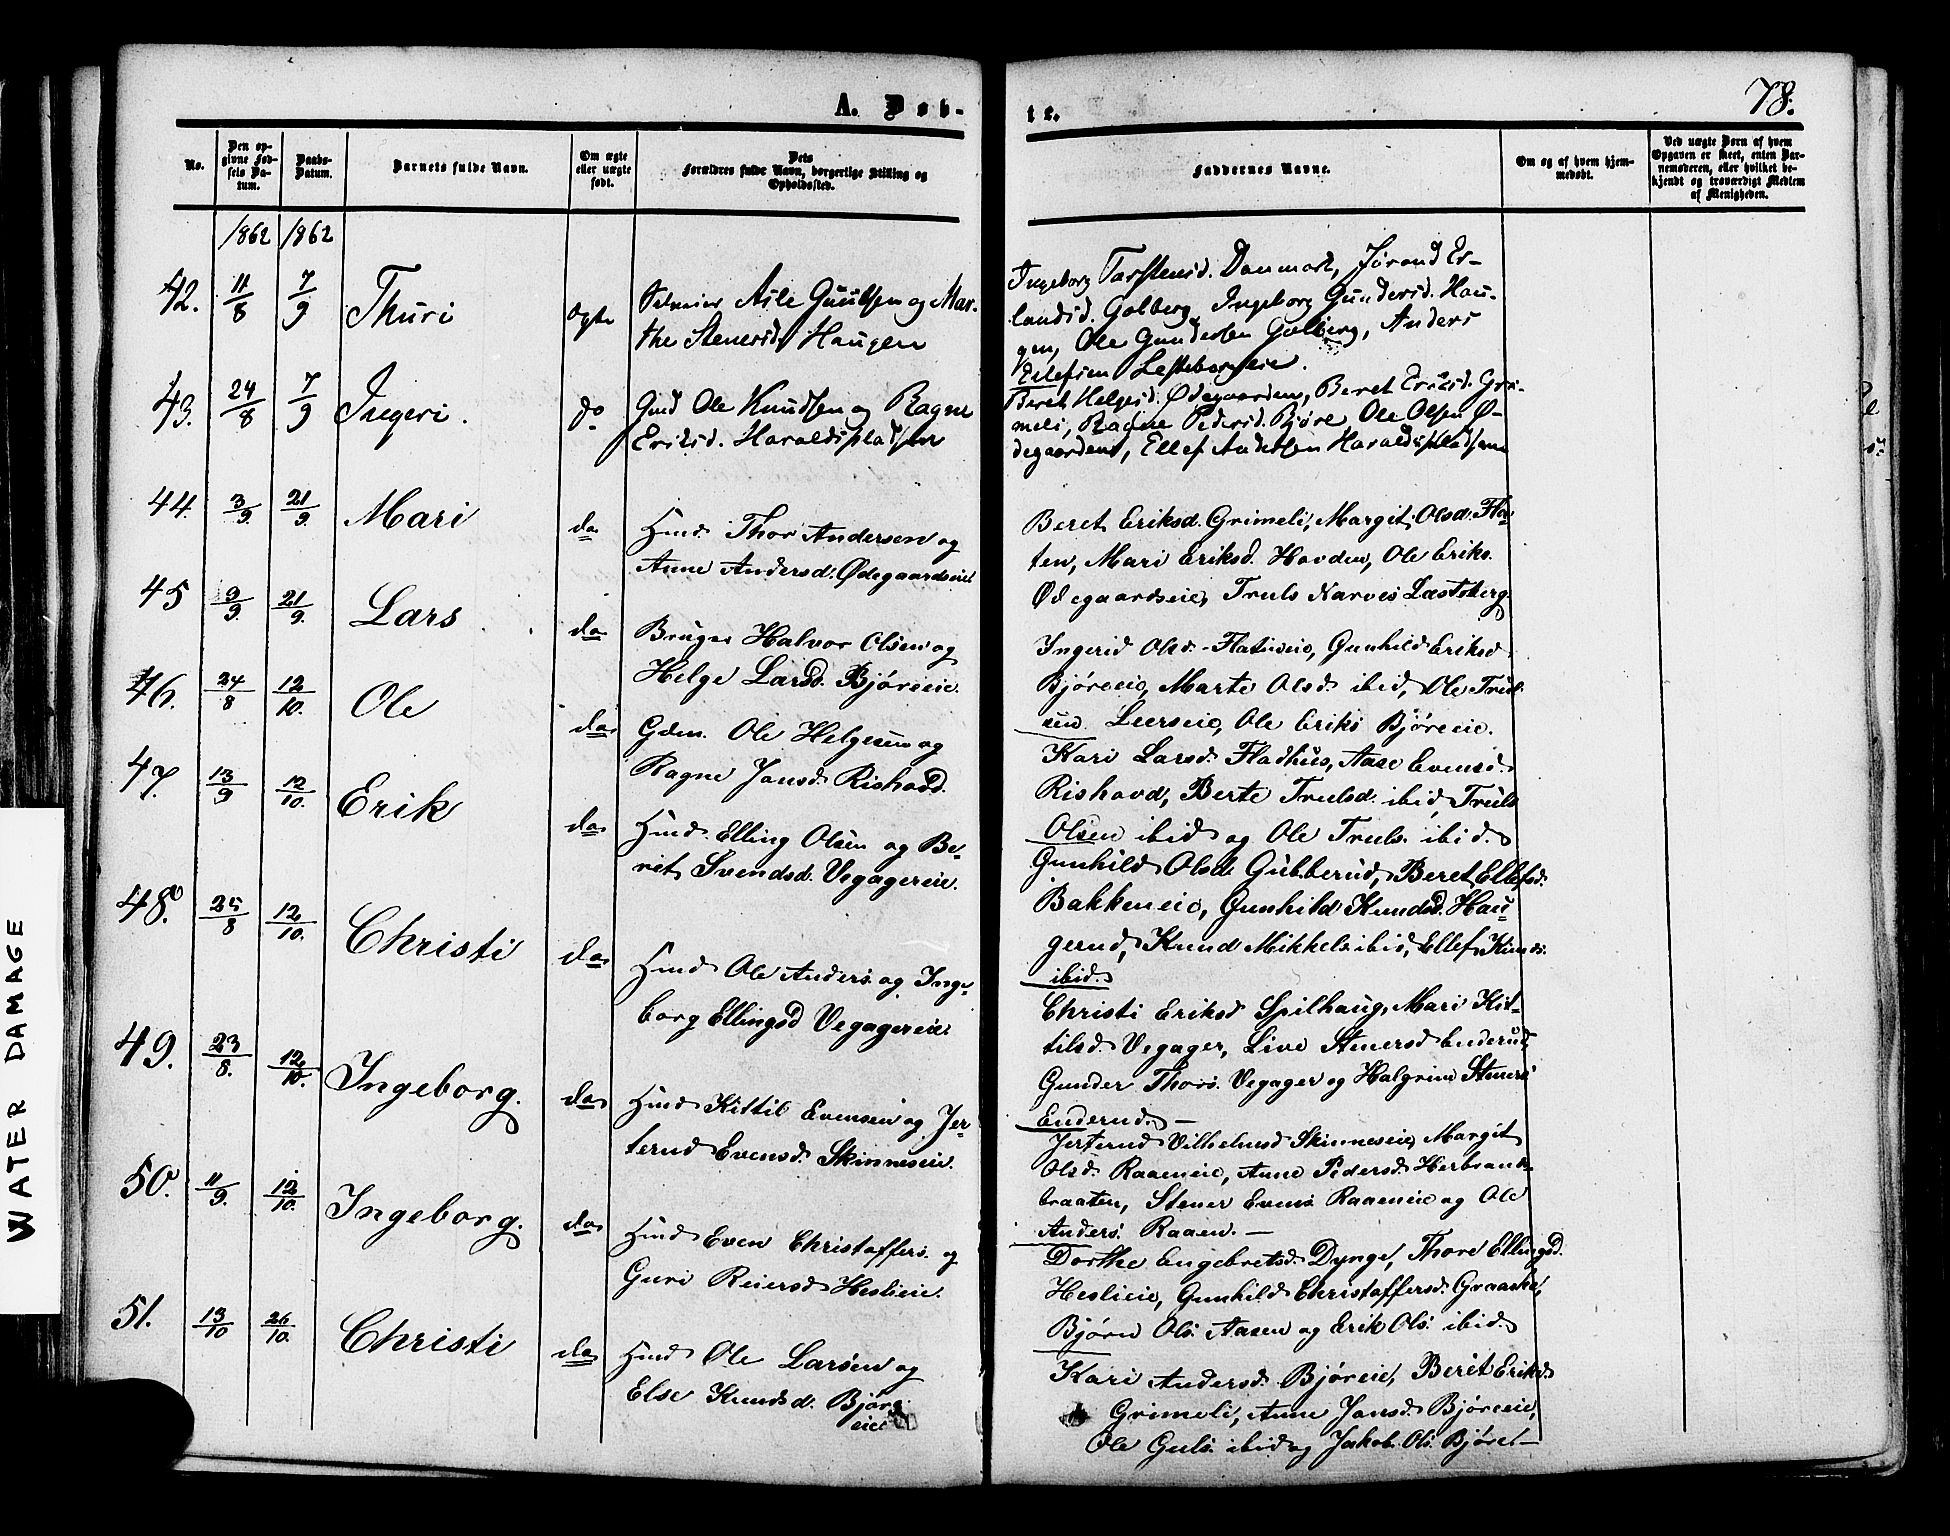 A. Døb-
te.
78.
No.
Den op-
givne Fød-
sels Da-
tum.
Daabs-
Datum.
Barnets fulde Navn.
Om ægte
eller uægte
født.
Dets
Forældres fulde Navn, borgerlige Stilling og
Opholdssted.
Faddernes Navne.
Om og af hvem hjem-
medøbt.
Ved uægte Børn af hvem
Opgaven er skeet, enten Bar-
nemoderen, eller hvilket be-
kjendt og troværdigt Medlem
af Menigheden.
1862 1862
42. 11/8 7/9 Thuri ægte
Asle Guulsen og Mar-
the Stenersd. Haugen
Ingeborg Torstensd. Danmark, Jørand Er-
landsd. Golberg, Ingeborg Gundersd. Hau-
gen, Ole Gundersen Golberg, Anders
Ellefsen
43. 24/8 7/9 Ingeri. do
Gmd Ole Knudsen og Ragne
Eriksd. Haraldspladsen
Beret Helgesd. Ødegaarden, Beret Eriksd. Gri-
meli, Ragne Pedersd. Bjøre, Ole Olsen Ø-
degaarden, Ellef Andersen Haraldspladsen
44. 3/9 21/9 Mari do
Hmd Thor Andersen og
Anne Andersd. Ødegaardseiet
Beret Eriksd. Grimeli, Margit Olsd. Fla-
ten, Mari Eriksd. Hovden, Ole Eriks.
Ødegaardseie, Truls Narves
45 9/9 21/9 Lars do
Bruger Halvor Olsen og
Helge Larsd. Bjøreeie.
Ingerid Olsd. Flateneie, Gunhild Eriksd.
Bjøreeie, Marte Olsd. ibid, Ole Trul-
sen Leerseie, Ole Eriks Bjøreeie.
46. 24/8 12/10. Ole do
Gden. Ole Helgesen og
Ragne Jansd. Rishovd.
Kari Larsd. Fladhus, Aase Evensd.
Rishovd, Berte Trulsd. ibid, Truls
Olsen ibid og Ole Truls. ibid.
47. 13/9 12/10. Erik do
Hmd. Elling Olsen og Be-
ret Svendsd. Vegagereie.
Gunhild Olsd. Gubberud, Beret Ellefsd.
Bakkeneie, Gunhild Knudsd. Hau-
gerud, Knud Mikkels ibid, Ellef Knuds.
ibid.
48. 25/8 12/10. Christi do
Hmd Ole Anders. og Inge-
borg Ellingsd Vegagereie
Christi Eriksd Spilhaug, Mari Kit-
tilsd. Vegager, Live Stenersd Enderud,
Gunder Thors. Vegager og Halgrim Steners
Enderud. —
49. 23/8. 12/10. Ingeborg. do
Hmd Kittil Evensen og Jer-
terud Evensd. Skinneseie.
Jerterud Vilhelmsd Skinneseie, Margit
Olsd. Raaeneie, Anne Pedersd. Herbrands-
braaten, Stener Evens Raaeneie og Ole
Anders. Raaen. —
50. 11/9. 12/10. Ingeborg. do
Hmd Even Christoffers. og
Guri Reiersd Heslieie.
Dorthe Engebretsd. Dynge, Thore Ellingsd.
Heslieie, Gunhild Christoffersd. Graaske,
Bjørn Ols. Aasen og Erik Ols. ibid.
51. 13/10 26/10. Christi do
Hmd Ole Larsen og
Else Knudsd. Bjøre
eie
Kari Andersd. Bjøreeie, Berit Eriksd.
Grimeli, Anne Jansd. Bjøreeie,
Ole Guls. ibid og Jakob Ols. Bjøre —
WATER DAMAGE